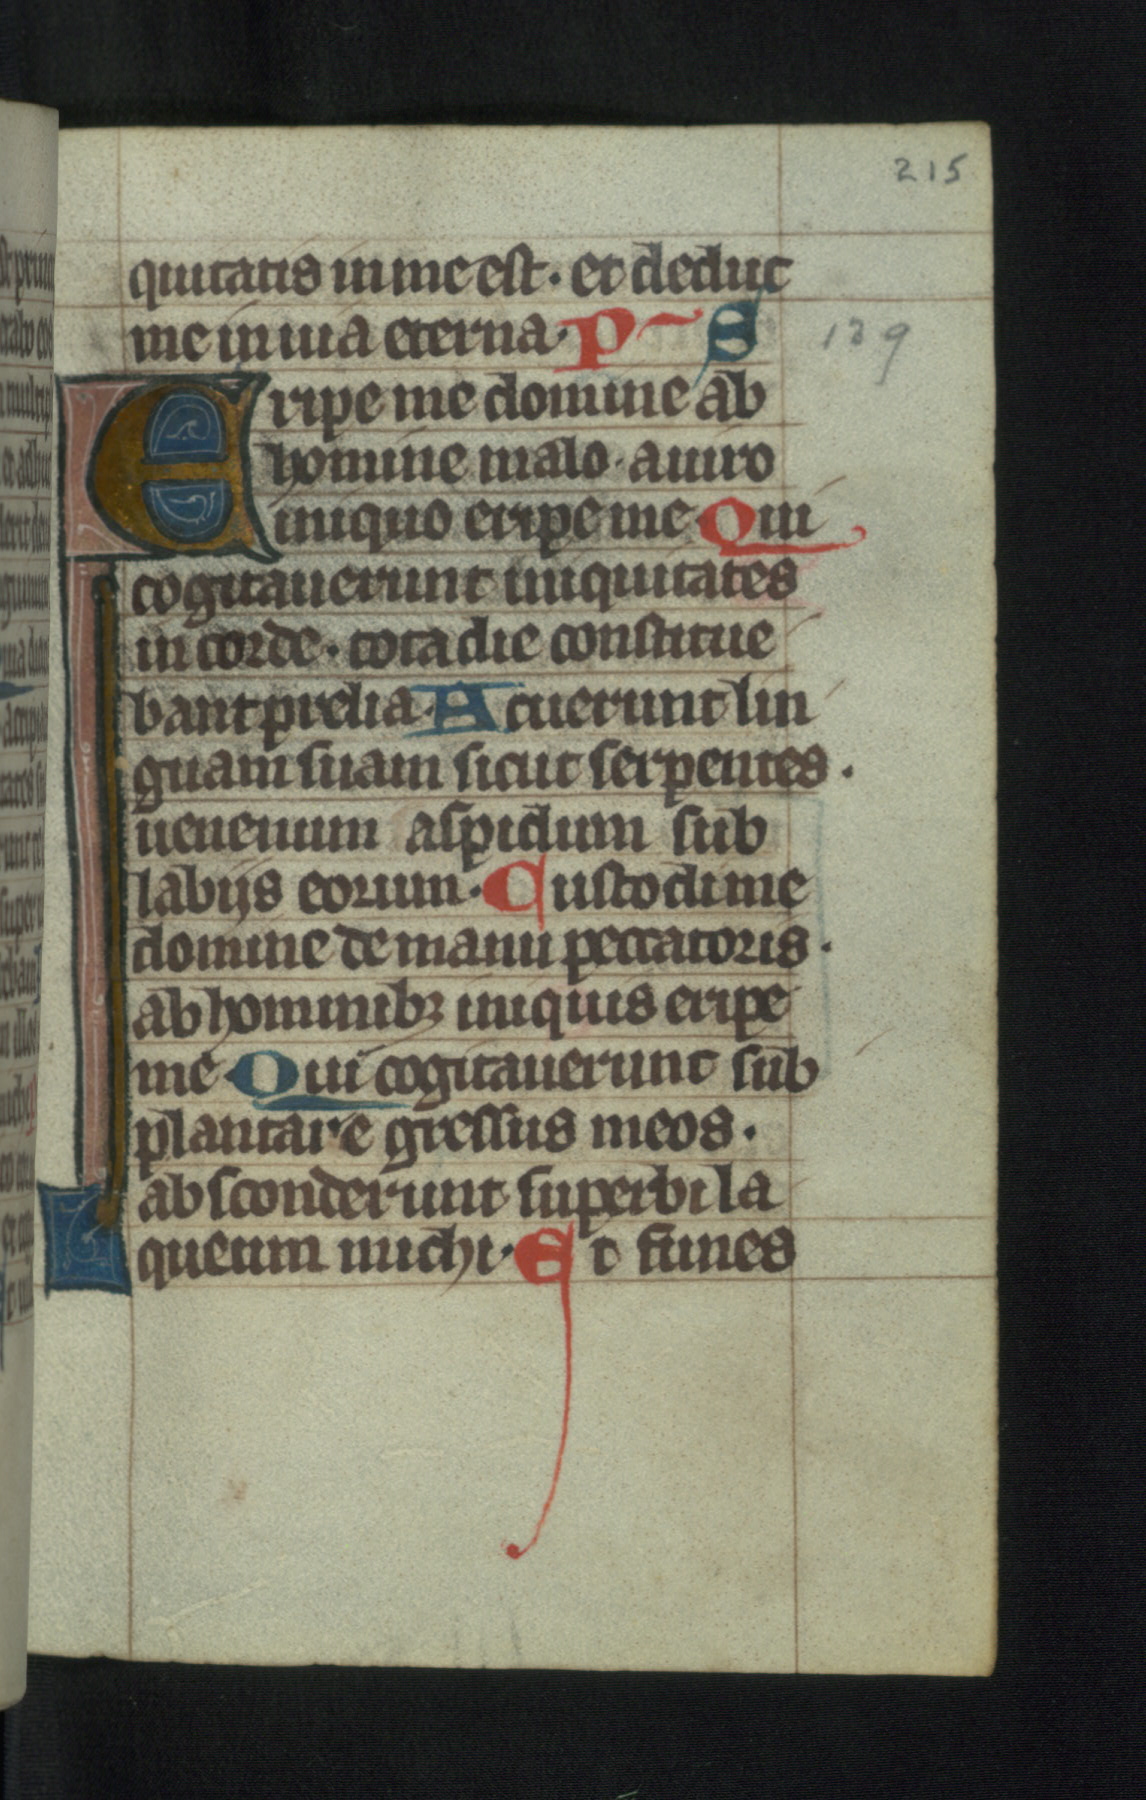 215
quitatis in me est· et deduc
me in uia eterna· P S
139
Eripe me domine ab
homine malo· a uiro
iniquo eripe me Qui
cogitauerunt iniquitates
in corde· tota die constitue
bant prelia· Acuerunt lin
guam suam sicut serpentes·
uenenum aspidum sub
labijs eorum· Custodi me
domine de manu peccatoris·
ab hominibꝫ iniquis eripe
me Qui cogitauerunt sub
plantare gressus meos·
absconderunt superbi la
queum michi· Et funes